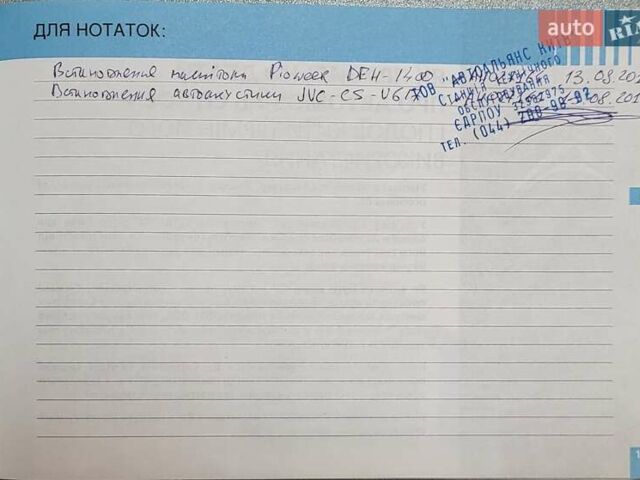 auto RIA
ДЛЯ НОТАТОК:
Встановлення магнітоли Pioneer DEH-1400 13.09.201
Встановлення автоакустики JVC-CS-V6 08.201
ТОВ "АВТОАЛЬЯНС КИЇВ"
СТАНЦІЯ ТЕХНІЧНОГО
ОБСЛУГОВУВАННЯ
ЄДРПОУ 32982975
ТЕЛ. (044)
1